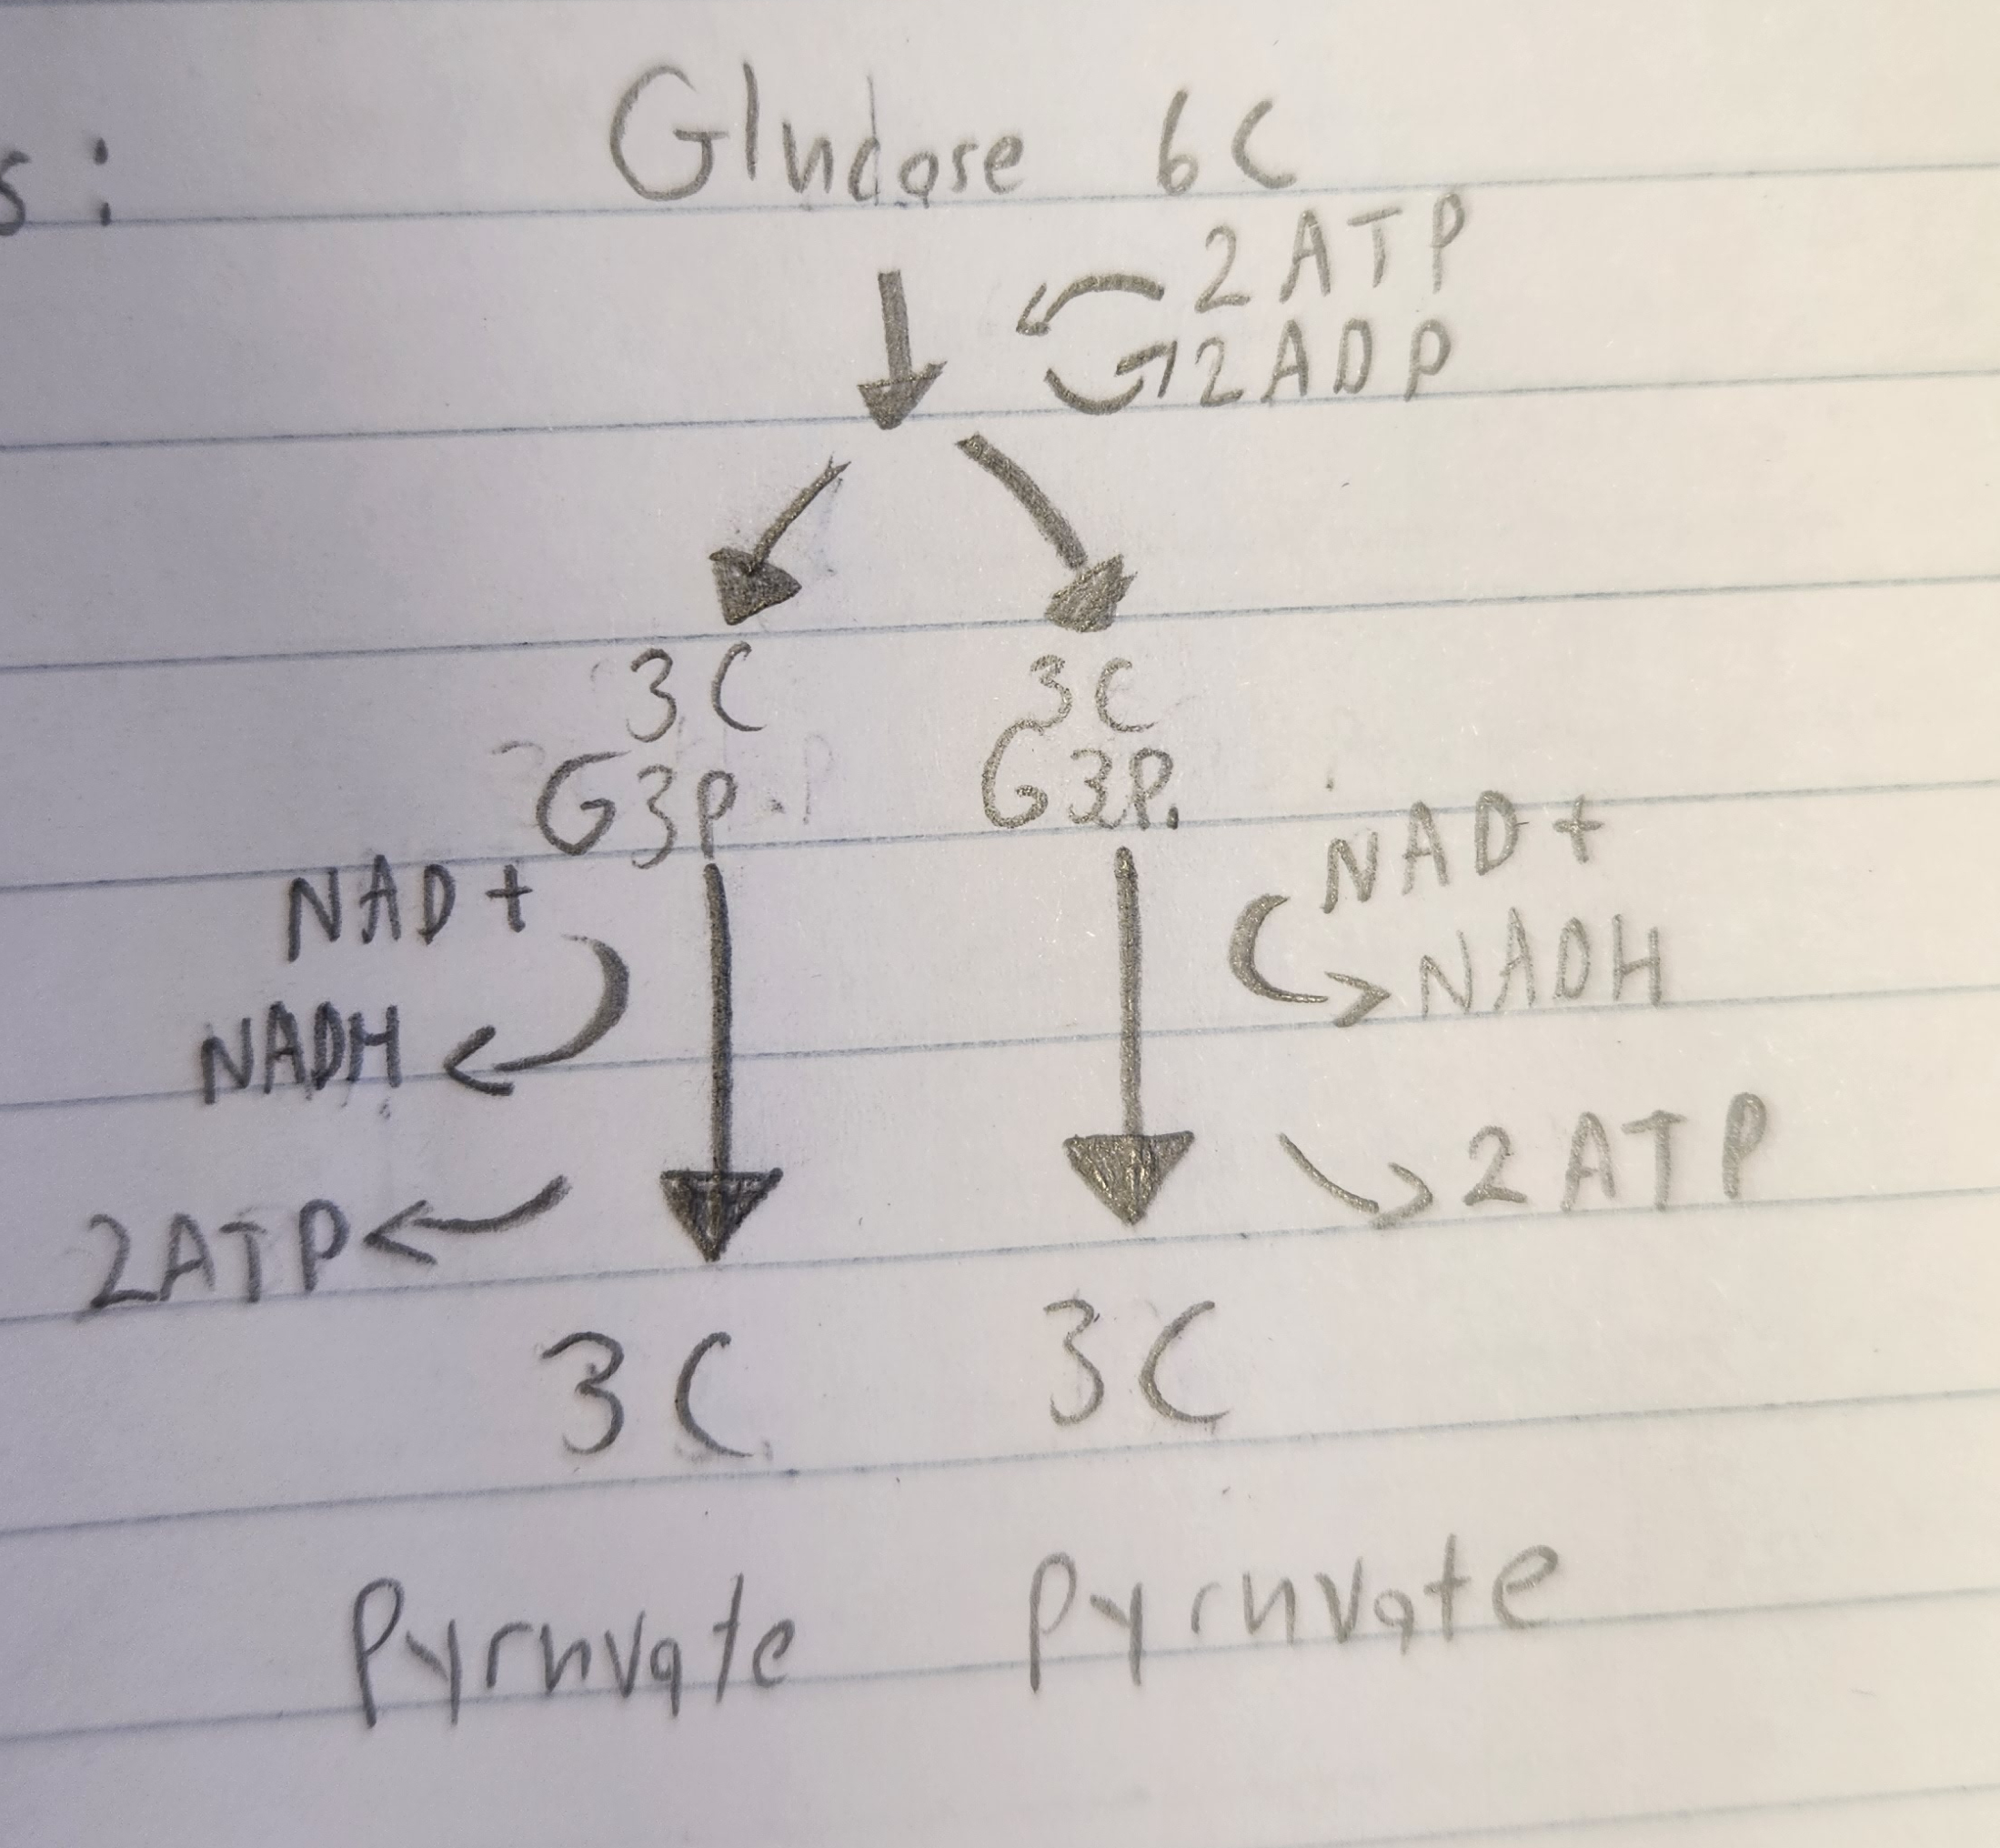 s:
Glucose 6C
2 ATP
2 ADP
3C 3C
G3P. G3P.
NAD+ NAD+
NADH NADH
2ATP 2 ATP
3C 3C
Pyruvate Pyruvate